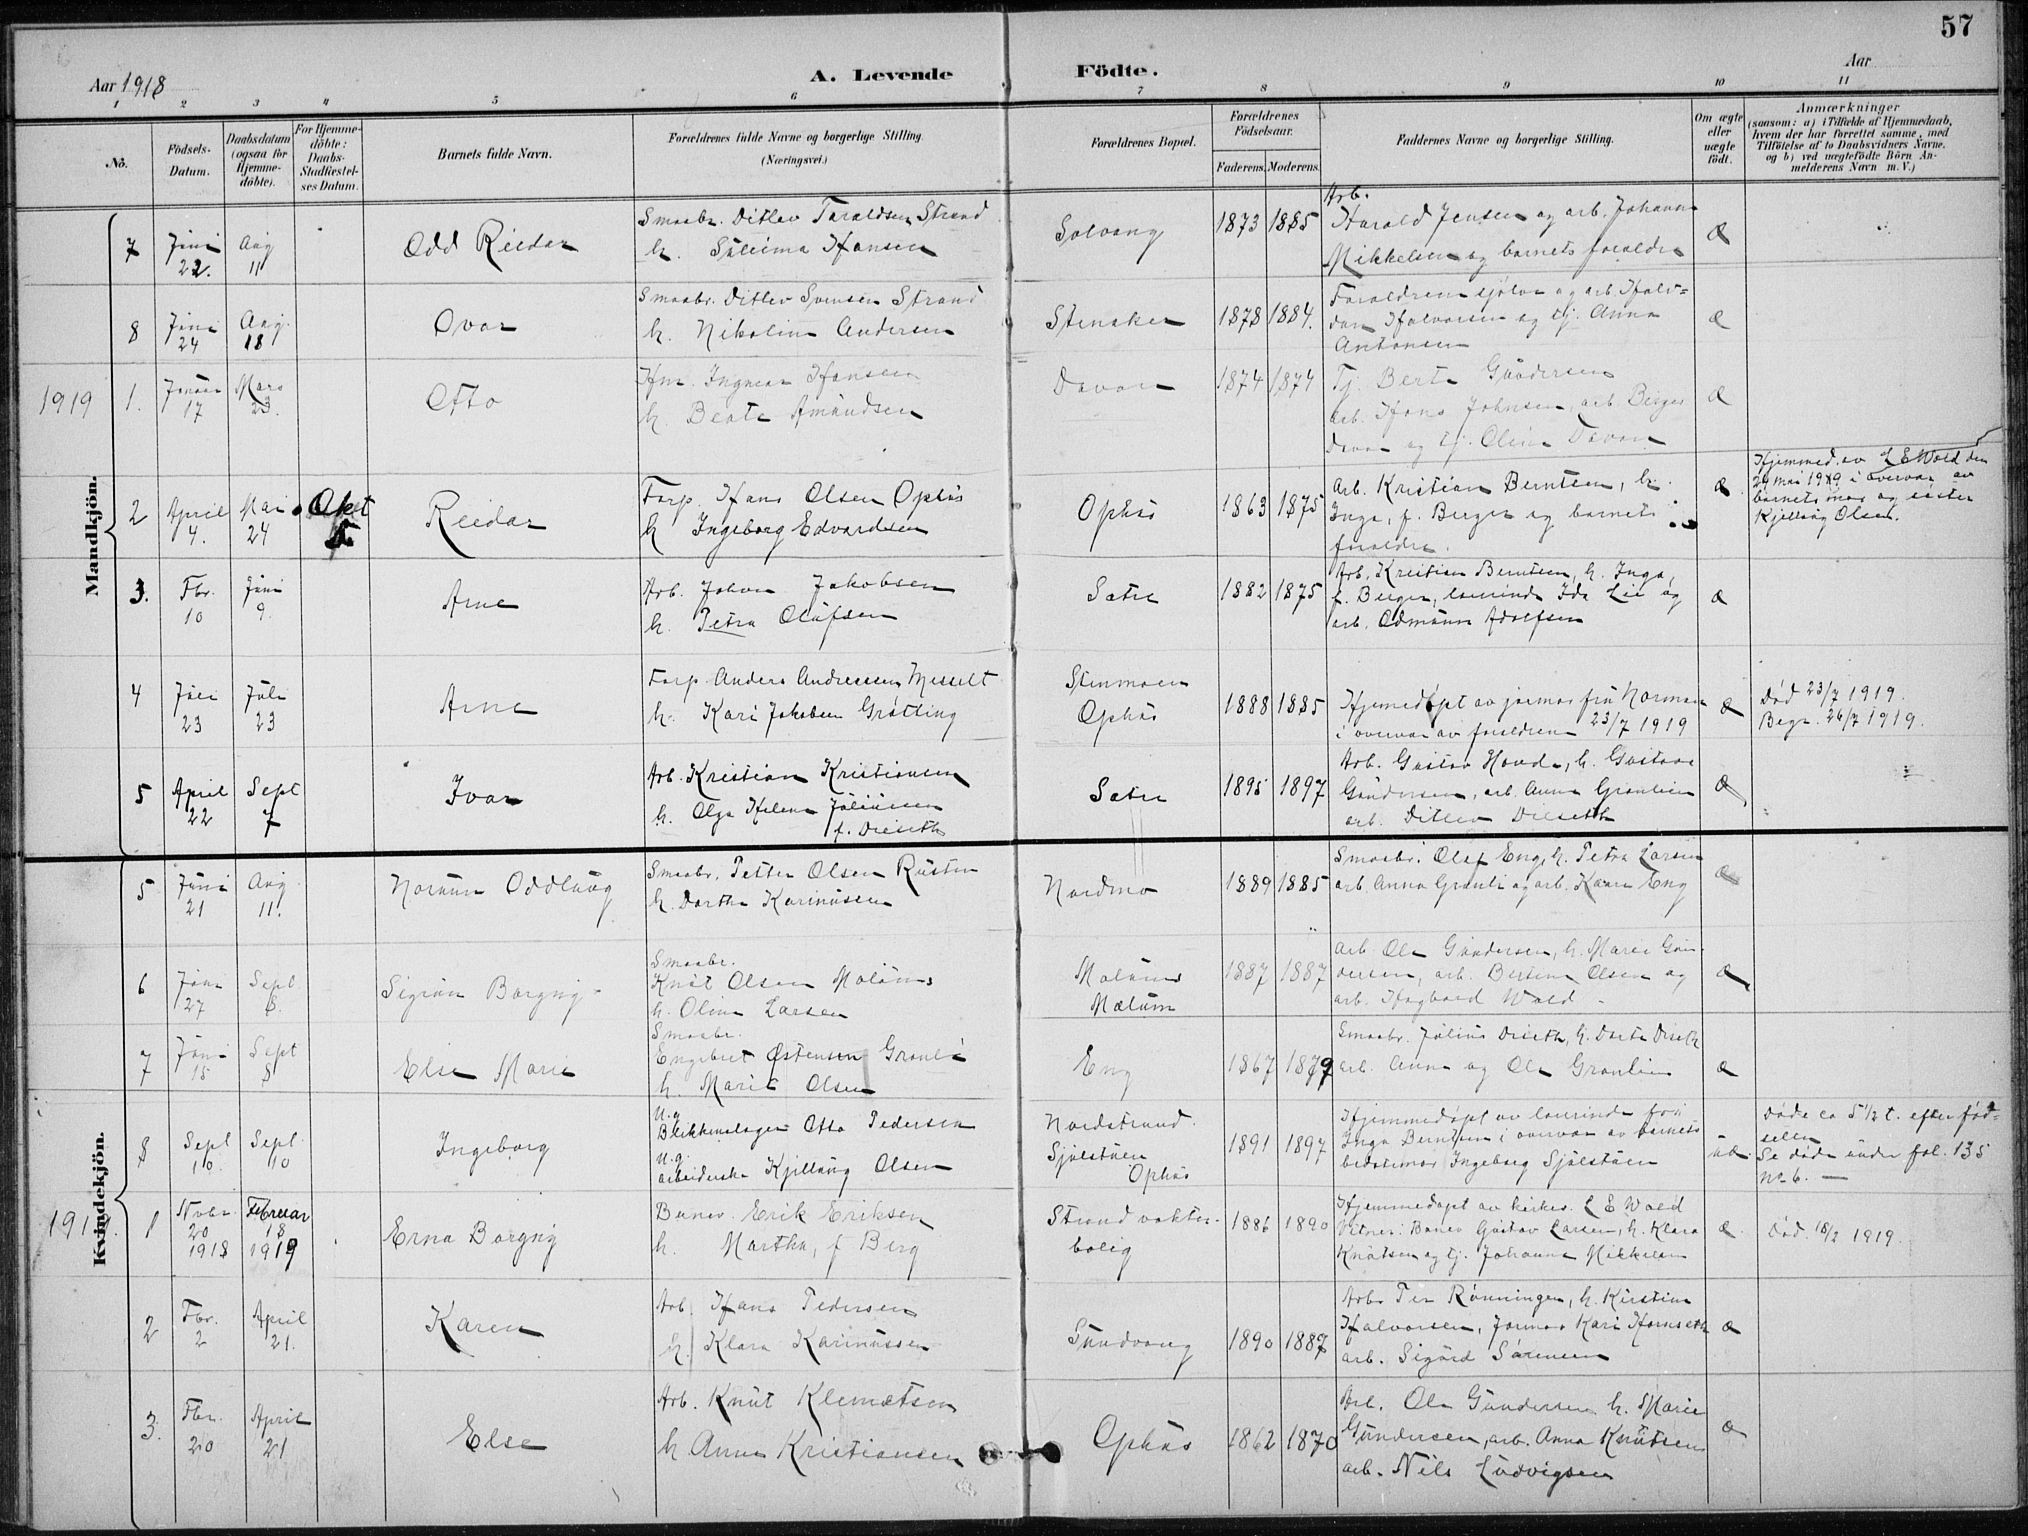 57
Aar 1918
A. Levende Födte.
Aar
1 2 3 4 5 6 7 8 9 10 11
No.
Födsels-Datum.
Daabsdatum (ogsaa for Hjemme-döbte).
For Hjemme-döbte: Daabs-Stadfæstel-ses Datum.
Barnets fulde Navn.
Forældrenes fulde Navne og borgerlige Stilling. (Næringsvei.)
Forældrenes Bopæl.
Forældrenes Födselsaar.
Faderens. Moderens.
Faddernes Navne og borgerlige Stilling.
Om ægte eller uægte födt.
Anmærkninger
(saasom: a) i Tilfælde af Hjemmedaab, hvem der har forrettet samme, med Tilföielse af to Daabsvidners Navne, og b) ved uægtefödte Börn An-melderens Navn m. V.)
Mandkjön.
7 Juni 22. Aug 11 Odd Reidar
Smaabr. Ditlev Taraldsen Strand
h. Hansen
Solvang 1873 1885
Arb.
Harald Jensen og arb. Johanne
Mikkelsen og barnets foraldre
æ
8 Juni 24 Aug. 18 Ovar
Smaabr. Ditlev Svensen Strand
h. Nikoline Andersen
Stenaker 1878 1884.
Foraldrene sjølve og arb. Halv=
dan Halvorsen og tj. Anna
Antonsen
æ
1919 1. Januar 17 Mars 23. Otto
Hm. Ingvar Hansen
h. Beate Amundsen
Davon 1874 1874
Tj. Berte Gundersen
arb. Hans Johnsen, arb. Birger
Davon og tj. Oline Davon
æ
2 April 4. Mai 24 Okt 5. Reidar
Forp. Hans Olsen Ophus
h Ingeborg Edvardsen
Ophus 1863 1875
Arb. Kristian Berntsen, h.
Inga, f. Berger og barnets
foraldre.
æ
Hjemmed. av L E Wold den
24 mai 1919 i overvær av
barnets mor og søster
Kjellaug Olsen.
3. Fbr. 10 Juni 9. Arne
Arb. Johan Jakobsen
h. Petra Olufsen
Sætre 1882 1875
Arb. Kristian Berntsen, h. Inga,
f. Berger, laurinde Ida Lie og
arb. Edmunn Adolfsen
æ
4 Juli 23 Juli 23 Arne
Forp Anders Andreassen Messelt
h. Kari Jakobsen Grøtting
Stenmoen
Ophus 1888 1885
Hjemedøpt av jormor fru Norman
i overvær av foraldrene 23/7 1919
æ
Død 23/7 1919.
Begr. 26/7 1919.
5 April 22 Sept 7 Ivar
Arb. Kristian Kristiansen
h. Olga Helene Juliussen
f. Dieseth
Sætre 1895 1897
Arb. Gustav Hovde, h. Gustava
Gundersen, arb. Anna Granlien
arb. Ditlev Dieseth
æ
Kvindekjön.
5 Juni 21 Aug 11. Norunn Oddlaug
Smaabr. Petter Olsen Rusten
h. Dorthe Karinussen
Nordmo 1889 1885
Smaabr. Olaf Eng, h. Petra Larsen
arb Anna Granli og arb. Kaare Eng
æ
6 Juni 27 Sept 8. Sigrun Borgny
Smaabr.
Knut Olsen Malums
h. Oline Larsen
Malums
Mælum 1887 1887
arb. Ole Gundersen, h. Marie Gun-
dersen, arb. Bertine Olsen og
arb. Hagbard Wold
æ
7 Juni 15 Sept 8 Else Marie
Smaabr.
Engebret Østensen Granli
h. Marit Olsen
Eng 1867 1879
Smaabr. Julius Diseth, h. Dorte Diseth
arb. Anna og Ole Granlien
æ
8 Sept 10. Sept. 10 Ingeborg
U.g.
Blikkenslager Otto Pedersen
u.g.
arbeiderske Kjellaug Olsen
Nordstrand.
Sjølstuen
Ophus 1891 1897
Hjemmedøpt av laurinde fru
Inga Berntsen i overvær av barnets
bedstemor Ingeborg Sjølstuen
uæ
Døde ca 5 1/2 t. efter fød=
selen
Se døde under fol. 135
No 6. —
1919. 1 Nvbr. 20 1918 Februar 18 1919 Erna Borgny
Banev. Erik Eriksen
h. Martha, f Berg
Strand vokter-
bolig 1886 1890
Hjemmedøpt av kirkes. L E Wold
Vitner: Banev. Gustav Larsen, h. Klara
Knutsen og tj. Johanne Mikkelsen
æ.
Død 18/2 1919.
2 Fbr. 2 April 21. Karen
Arb. Hans Pedersen
h. Klara Karinussen
Sundvang 1890 1887
Arbr Per Rønningen, h. Kirstine
Halvorsen, jormor Kari Hornseth
arb. Sigurd Sørensen
æ
3. Fbr. 20 April 21 Else
Arb. Knut Klemetsen
h Anne Kristiansen
Ophus 1862 1870
Arb. Ole Gundersen h. Marie
Gundersen, arb. Anna Knutsen
arb. Nils Ludvigsen
æ